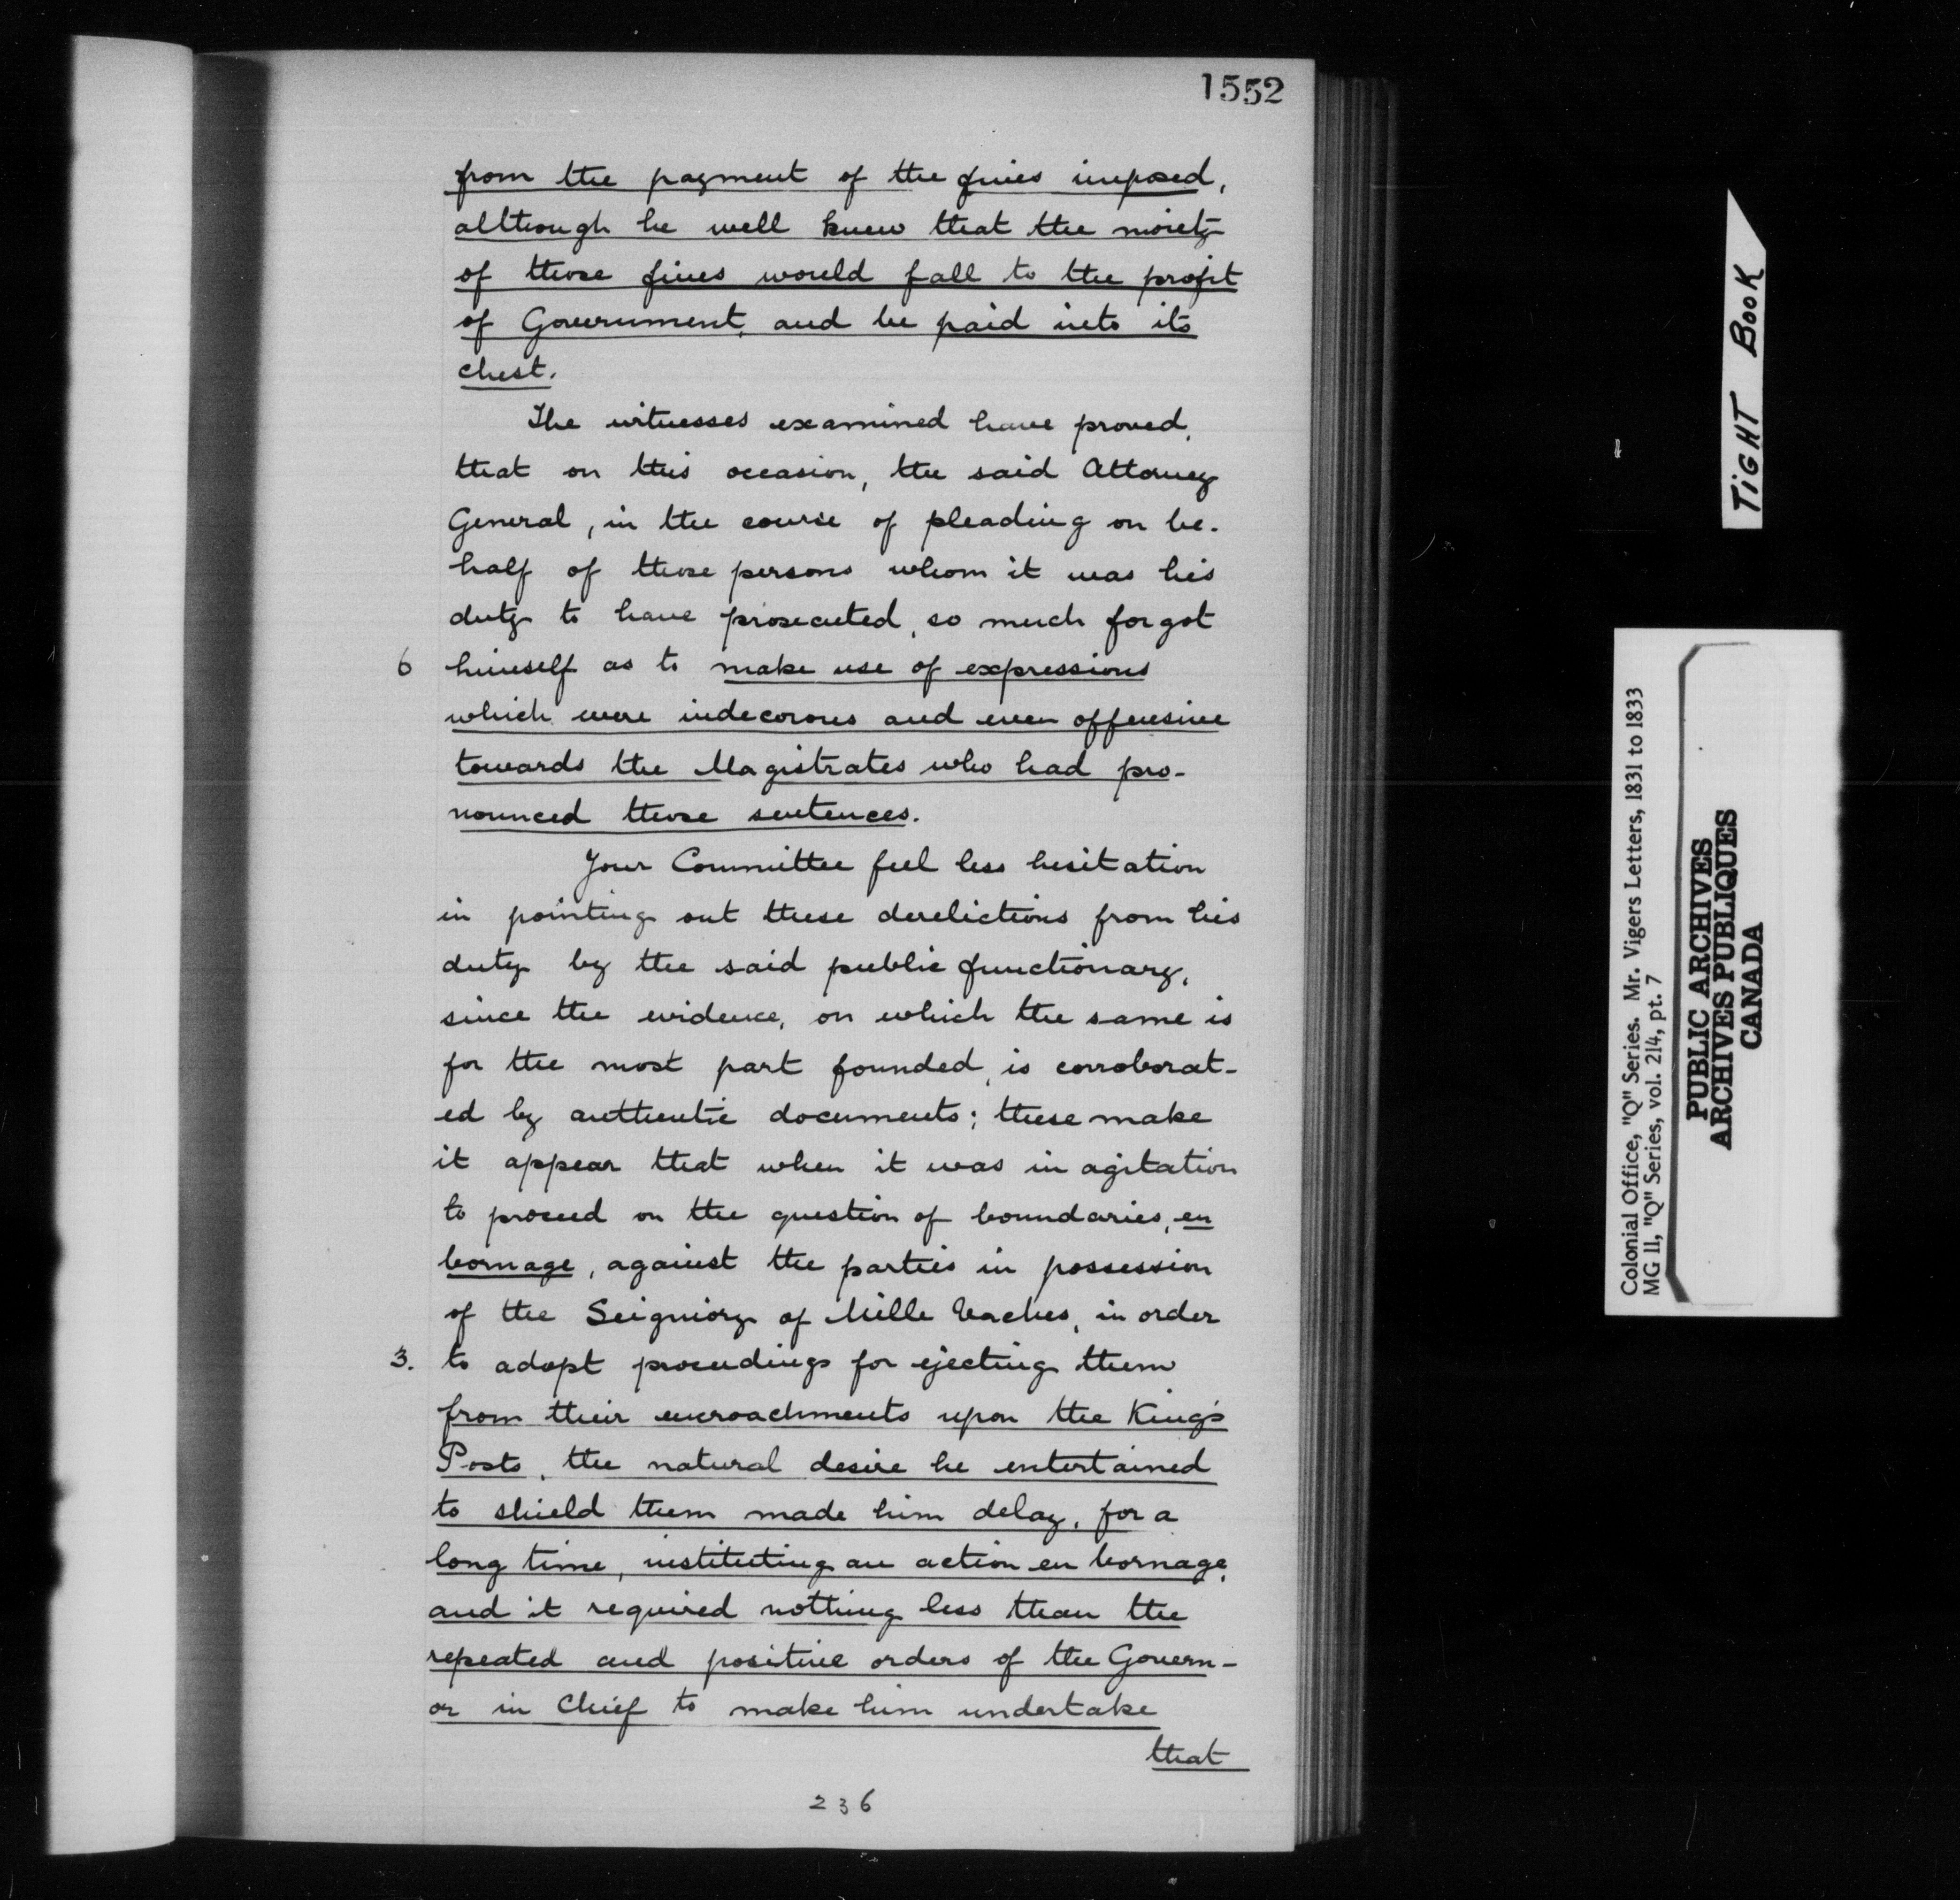 1552
from the payment of the fines imposed,
although he well knew that the moiety
of those fines would fall to the profit
of Government, and be paid into its
chest.
The witnesses examined have proved,
that on this occasion, the said Attorney
General, in the course of pleading on be-
half of those persons whom it was his
duty to have prosecuted, so much forgot
6 himself as to make use of expressions
which were indecorous and even offensive
towards the Magistrates who had pro-
nounced those sentences.
Your Committee feel less hesitation
in pointing out these derelictions from his
duty by the said public functionary,
since the evidence, on which the same is
for the most part founded, is corroborat-
ed by authentic documents; these make
it appear that when it was in agitation
to proceed on the question of boundaries, en
bornage, against the parties in possession
of the Seigniory of Mille Vaches, in order
3. to adopt proceedings for ejecting them
from their encroachments upon the King's
Posts, the natural desire he entertained
to shield them made him delay, for a
long time, instituting an action en bornage,
and it required nothing less than the
repeated and positive orders of the Govern-
or in Chief to make him undertake
that
236
TIGHT BOOK
Colonial Office, "Q" Series. Mr. Vigers Letters, 1831 to 1833
MG 11, "Q" Series, vol. 214, pt. 7
PUBLIC ARCHIVES
ARCHIVES PUBLIQUES
CANADA